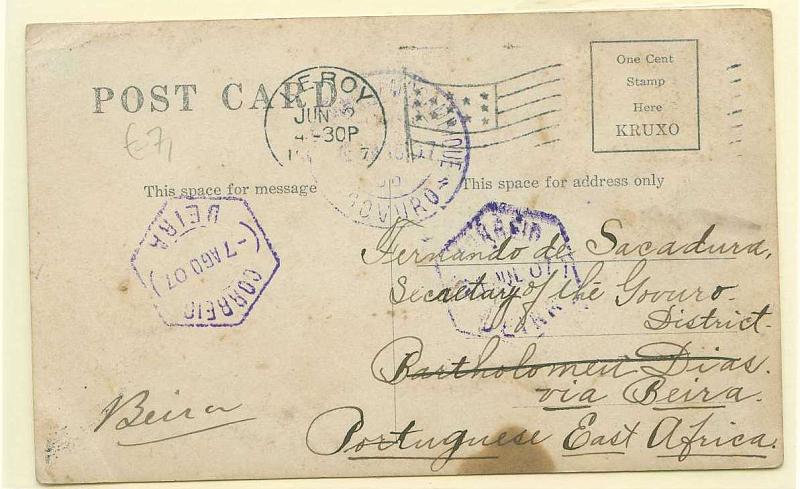 POST CARD
LEROY
JUN 5
4-30P
One Cent
Stamp
Here
KRUXO
GOVURO
€7,
This space for message
This space for address only
BEIRA
-7 AGO 07
CORREIO
CORREIO
JUL 07
BEIRA
Fernando de Sacadura,
Secretary of the Govuro
District.
Bartholomeu Dias.
via Beira.
Portuguese East Africa.
Beira